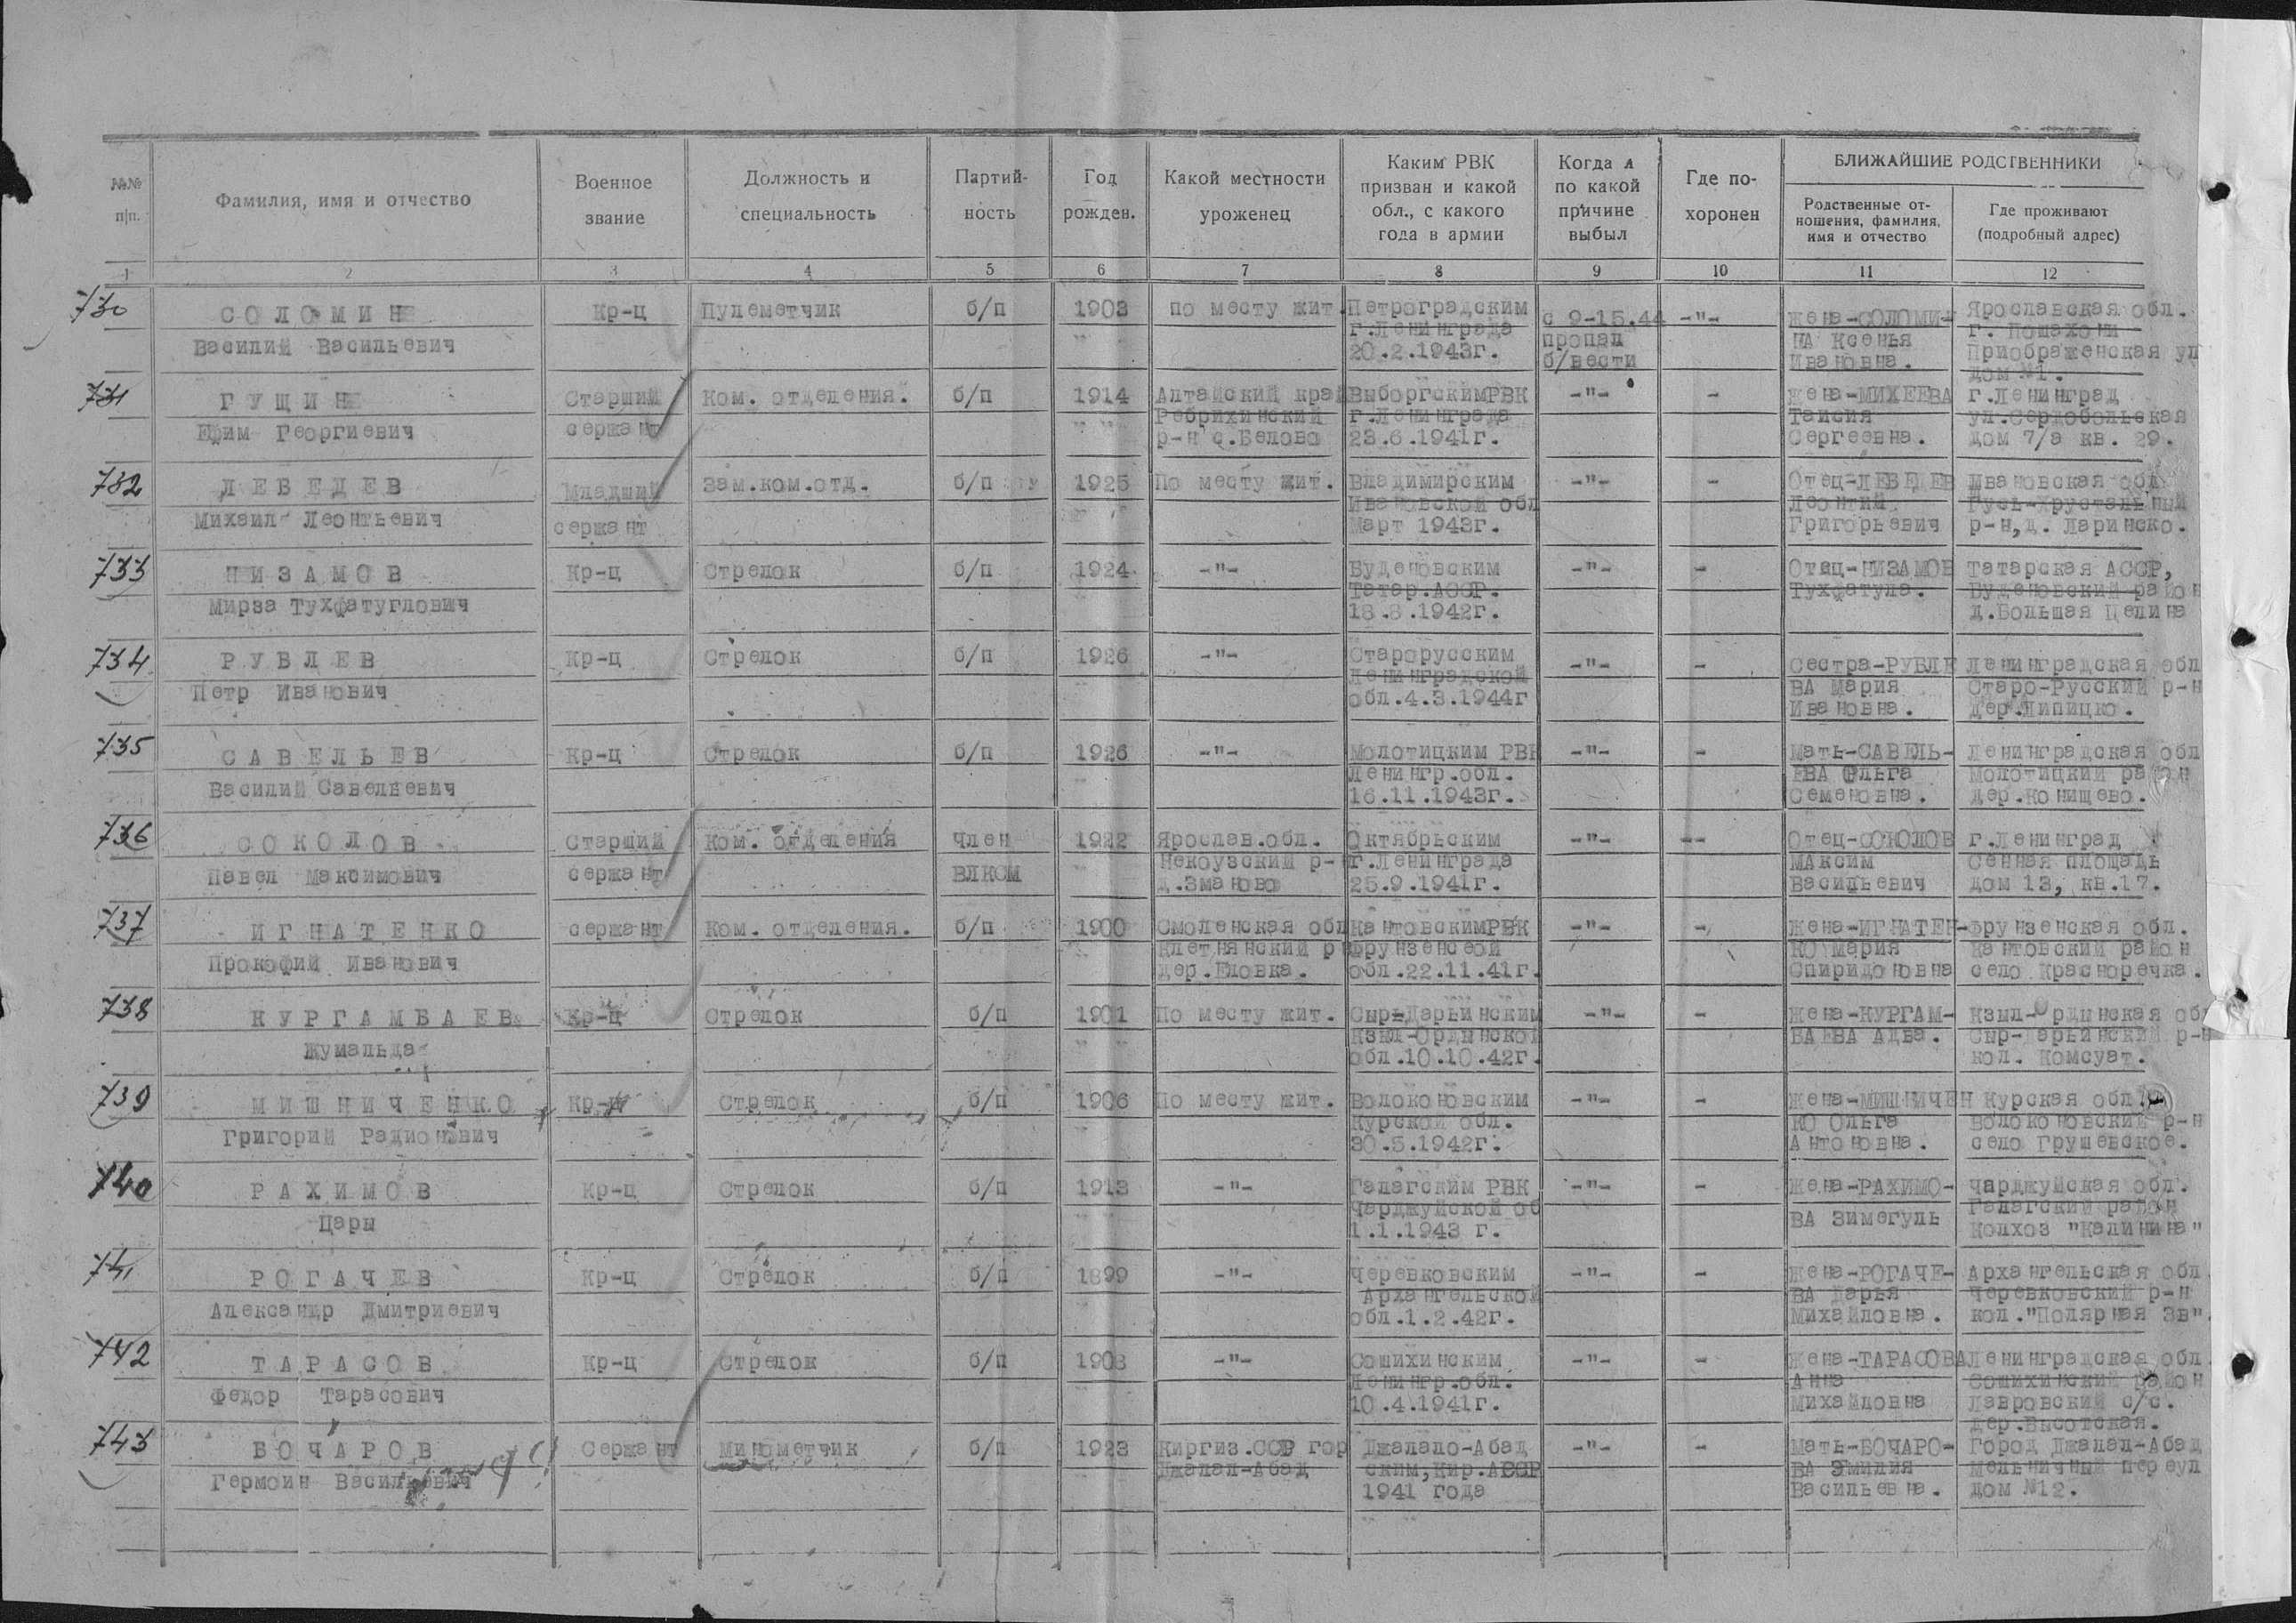 №№ п|п.
Фамилия, имя и отчество
Военное звание
Должность и специальность
Партий- ность
Год рожден.
Какой местности уроженец
Каким РВК призван и какой обл., с какого года в армии
Когда и по какой причине выбыл
Где по- хоронен
БЛИЖАЙШИЕ РОДСТВЕННИКИ
Родственные от- ношения, фамилия, имя и отчество
Где проживают (подробный адрес)
1 2 3 4 5 6 7 8 9 10 11 12
730 СОЛОМИН Кр-ц Пулеметчик б/п 1903 по месту жит. Петроградским с 9-15.44 -"- жена-СОЛОМИ- Ярославская обл.
Василий Васильевич г.Ленинграда пропал НА Ксенья г. Пошехони
20.2.1943г. б/вести Ивановна. Приображенская ул
дом №1.
731 ГУЩИН Старший Ком. отделения. б/п 1914 Алтайский край ВыборгскимРВК -"- - жена-МИХЕЕВА г.Ленинград
Ефим Георгиевич сержант Ребрихинский г.Ленинграда Таисия ул.Сердобольская
р-н с.Белово 23.6.1941г. Сергеевна. дом 7/а кв. 29.
732 ЛЕБЕДЕВ Младший Зам.ком.отд. б/п 1925 По месту жит. Владимирским -"- - Отец-ЛЕБЕДЕВ Ивановская обл
Михаил Леонтьевич сержант Ивановской обл Леонтий Гусь-Хрустальный
Март 1943г. Григорьевич р-н,д. Ларинско.
733 НИЗАМОВ Кр-ц Стрелок б/п 1924 -"- Буденовским -"- - Отец-НИЗАМОВ Татарская АССР,
Мирза Тухфатуглович Татар.АССР. Тухфатула. Буденовский район
18.8.1942г. д.Большая Целина
734 РУБЛЕВ Кр-ц Стрелок б/п 1926 -"- Старорусским -"- - Сестра-РУБЛЕ Ленинградская обл
Петр Иванович Ленинградской ВА Мария Старо-Русский р-н
обл.4.3.1944г Ивановна. дер.Липицко.
735 САВЕЛЬЕВ Кр-ц Стрелок б/п 1926 -"- Молотицким РВК -"- - Мать-САВЕЛЬ- Ленинградская обл
Василий Савелиевич Ленингр.обл. ЕВА Ольга Молотицкий район
16.11.1943г. Семеновна. дер.Конищево.
736 СОКОЛОВ Старший Ком. отделения Член 1922 Ярослав.обл. Октябрьским -"- -- Отец-СОКОЛОВ г.Ленинград
Павел Максимович сержант ВЛКСМ Некоузский р-н г.Ленинграда МАксим Сенная площадь
д.Зманово 25.9.1941г. Васильевич дом 13, кв.17.
737 ИГНАТЕНКО сержант Ком. отделения. б/п 1900 Смоленская обл КантовскимРВК -"- - Жена-ИГНАТЕН- Фрунзенская обл.
Прокофий Иванович Клетнянский р Фрунзенсеой КО Мария Кантовский район
дер.Еловка. обл.22.11.41г. Спиридоновна село Красноречка.
738 КУРГАМБАЕВ Кр-ц Стрелок б/п 1901 По месту жит. Сыр-Дарьинским -"- - Жена-КУРГАМ- Кзыл-Ордынская обл
Жумальда Кзыл-Ордынской БАЕВА Адва. Сыр-Дарьинский р-н
обл.10.10.42г. кол. Комсуат.
739 МИШНИЧЕНКО Кр-ц Стрелок б/п 1906 По месту жит. Волоконовским -"- - Жена-МИШНИЧЕН Курская обл.
Григорий Радионович Курской обл. КО Ольга Волоконовский р-н
30.5.1942г. Антоновна. село Грушевское.
740 РАХИМОВ Кр-ц Стрелок б/п 1913 -"- Галагским РВК -"- - Жена-РАХИМО- Чарджуйская обл.
Цары Чарджуйской об ВА Зимегуль Галагский район
1.1.1943 г. Колхоз "Калинина"
741 РОГАЧЕВ Кр-ц Стрелок б/п 1899 -"- Черевковским -"- - Жена-РОГАЧЕ- Архангельская обл
Александр Дмитриевич Архангельской ВА Дарья Черевковский р-н
обл.1.2.42г. Михайловна. кол."Полярная Зв".
742 ТАРАСОВ Кр-ц Стрелок б/п 1903 -"- Сошихинским -"- - Жена-ТАРАСОВА Ленинградская обл.
Федор Тарасович Ленингр.обл. Анна Сошихинский район
10.4.1941г. Михайловна Лавровский с/с.
дер.Высотская.
743 БОЧАРОВ Сержант Минометчик б/п 1923 Киргиз.ССР гор Джалало-Абад -"- - Мать-БОЧАРО- Город Джалал-Абад
Гермоин Васильевич Джалал-Абад ским,Кир.АССР ВА Эмилия Мельничный переул
1941 года Васильевна. дом №12.